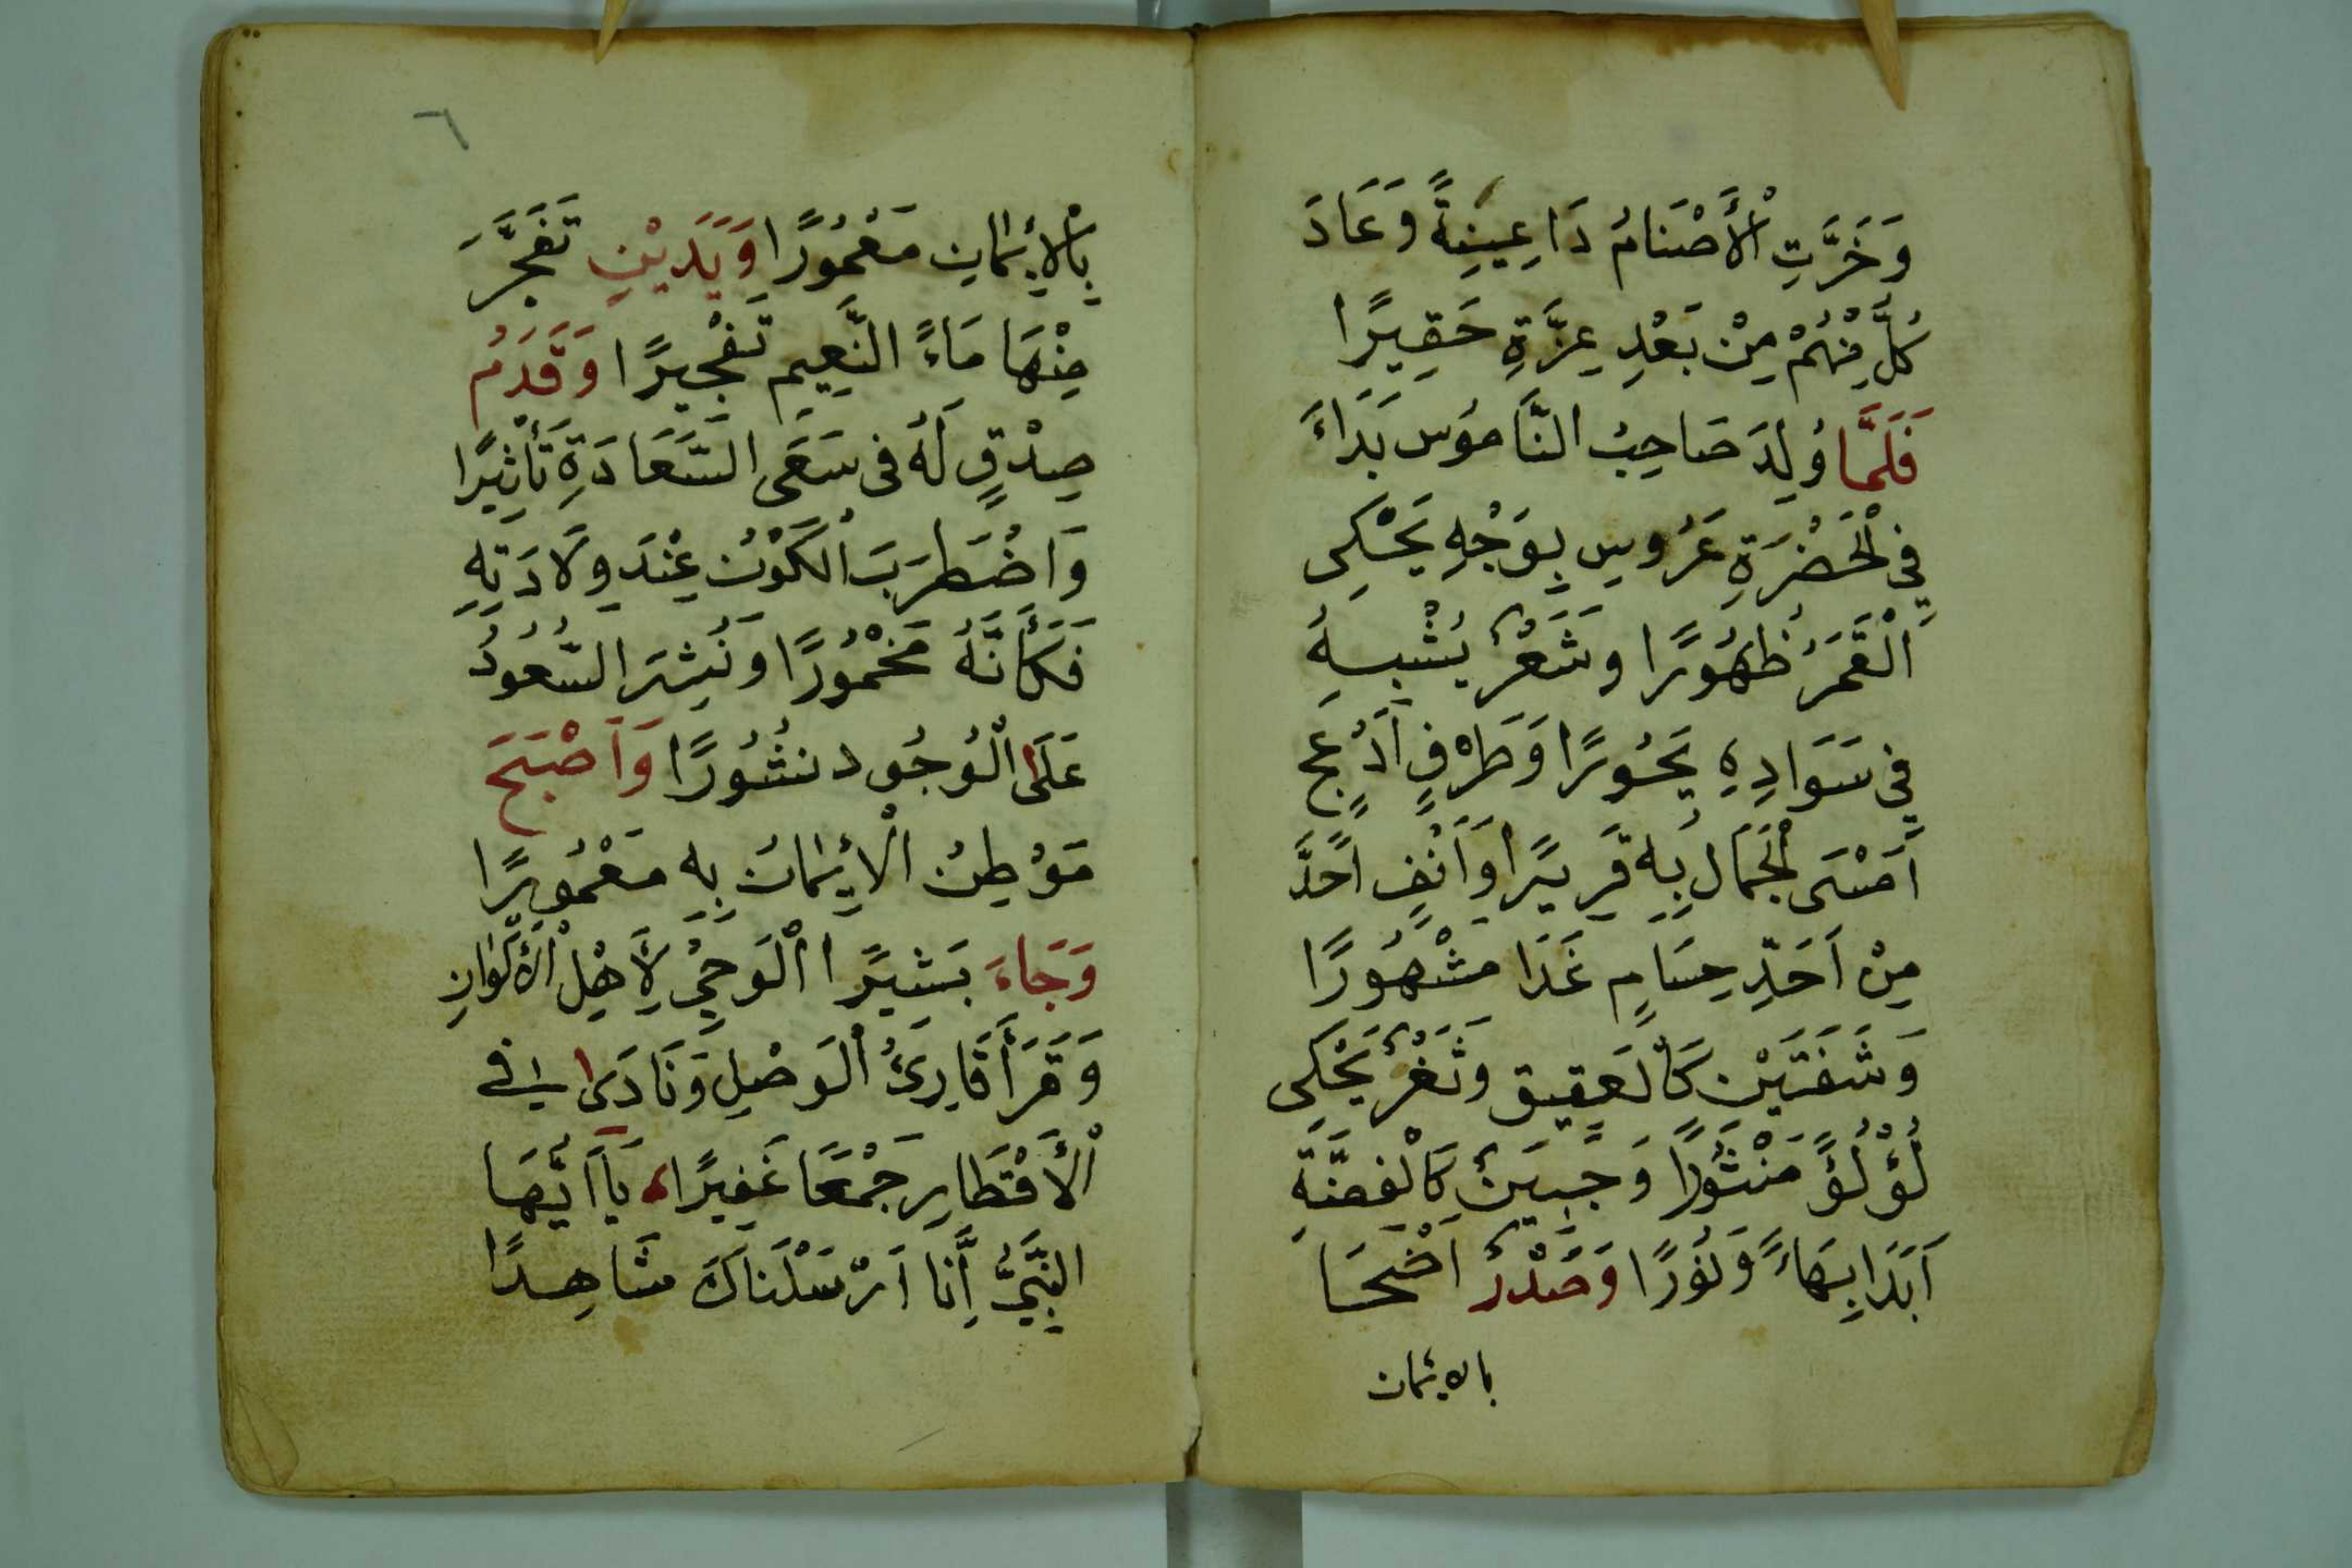 وَخَرَّتِ الْأَصْنَامُ دَاعِيَنِةً وَعَادَ
كُلٌّ مِنْهُمْ مِنْ بَعْدِ عِزَّةِ حَقِيرًا
فَلَمَّا وُلِدَ صَاحِبُ النَّامُوسِ بَدَاءَ
فِي الْخَضْرَةِ عَرُوسِ بِوَجْهِ يَحْكِى
الْقَمَرُ ظُهُورًا وَشَعْرٌ يُشْبِهُ
فِي سَوَادِهِ يَحُورًا وَطَرْفٍ أَدْعَجٍ
أَمْسَى الْجَمَالُ بِهِ قَرِيرًا وَأَنْفٍ أَحَدَّ
مِنْ أَحَدِّ حِسَامٍ غَدَا مَشْهُورًا
وَشَفَتَيْنِ كَالْعَقِيقِ وَثَغْرٌ يَحْكِى
لُؤْلُؤًا مَنْثُورًا وَجَبِينٌ كَالْفِضَّةِ
أَبَدَا بِهَاءً وَنُورًا وَصَدْرٌ أَضْحَا
بالايمان
٦
بِالْإِيْمَانِ مَعْمُورًا وَيَدَيْنِ تَفَجَّرَ
مِنْهَا مَاءً النَّعِيمِ تَفْجِيرًا وَقَدَمُ
صِدْقٍ لَهُ فِى سَعَى السَّعَادَةِ تَأْثِيرًا
وَاضْطَرَبَ الْكَوْنُ عِنْدَ وِلَادَتِهِ
فَكَأَنَّهُ مَخْمُورًا وَنُشِرَ السُّعُودُ
عَلَى الْوُجُودِ نُشُورًا وَأَصْبَحَ
مَوْطِنُ الْإِيْمَانُ بِهِ مَعْمُورًا
وَجَاءَ بَشِيرًا الْوَحِيُ لِأَهْلِ الْأَكْوَانِ
وَقَرَأَ قَارِئُ الْوَصْلِ وَنَادَى فِي
الْأَقْطَارِ جَمْعًا غَفِيرًا يَا أَيُّهَا
النَّبِيُّ إِنَّا أَرْسَلْنَاكَ شَاهِدًا